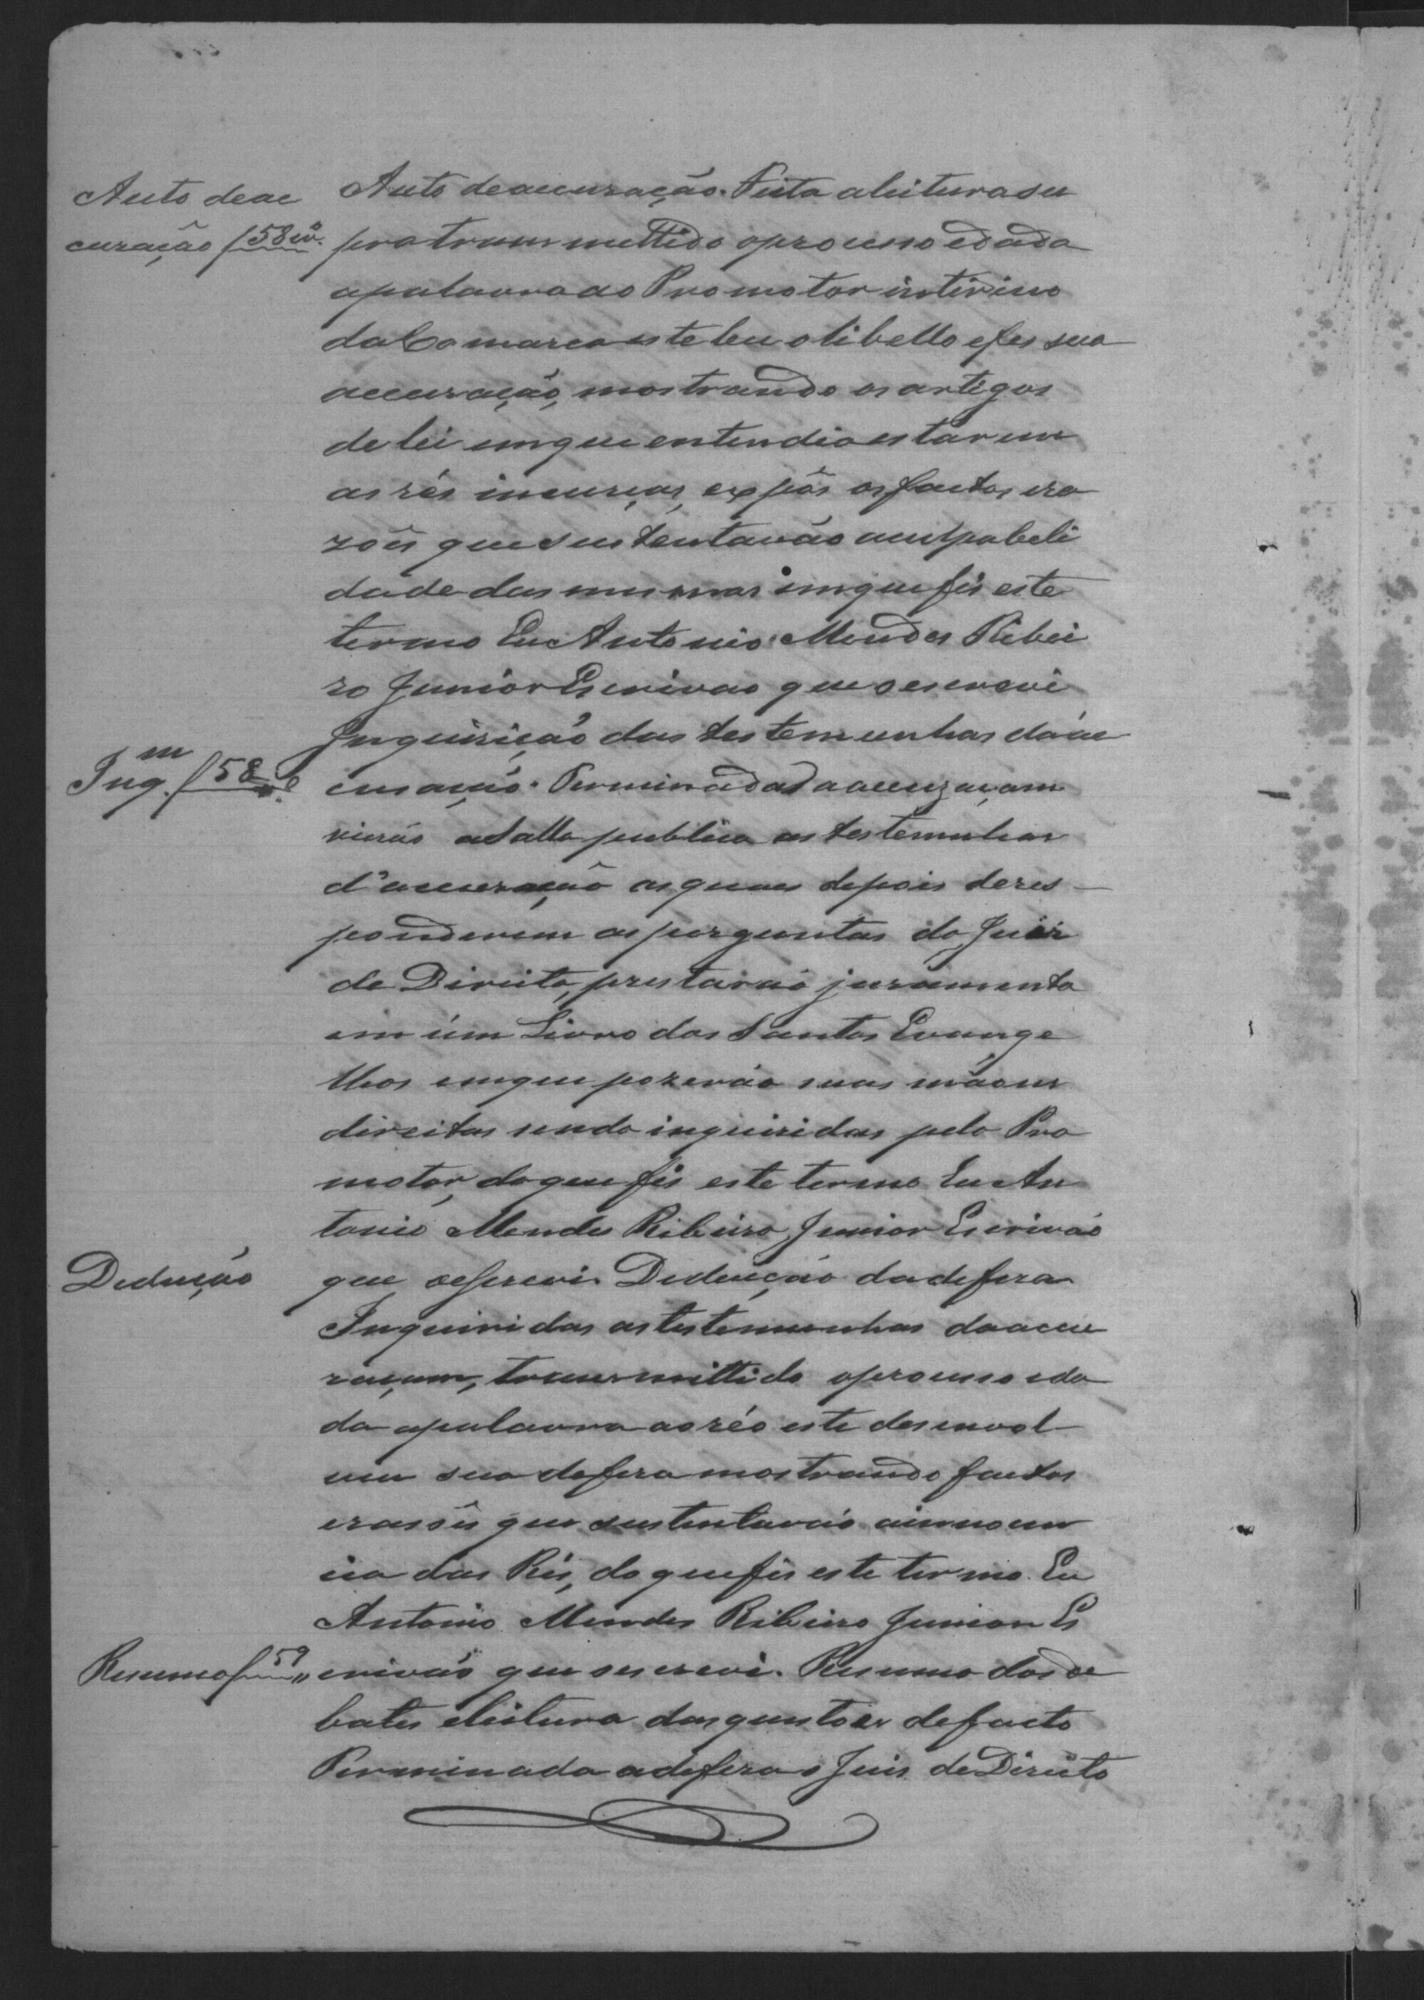 Auto de ac
cuzação f 58 v.
Auto de accuzação. Feita a leitura su
pra transmettido o processo e dada
a palavra ao Promotor interino
da Comarca este leu o libello e fes sua
accuzação, mostrando os artigos
de lei em que entendia estarem
as rés incursas, expôs os factos e ra
zões que sustentavão a culpabeli
dade das mesmas em que fis este
termo Eu Antonio Mendes Ribei
ro Junior Escrivao que o escrevi
Inquirição das testemunhas da ac
Inq.m f 58 v.
cusação. Terminada a accuzaçam
vierão a Salla publica as testemunhas
d'accuzação as quaes depois de res-
ponderem as perguntas do Juiz
de Direito, prestarão juramento
em um Livro dos Santos Evange
lhos em que pozerão suas mãous
direitas sendo inquiridas pelo Pro
motor, do que fis este termo Eu An
tonio Mendes Ribeiro Junior Escrivão
Dedução
que o escrevi. Dedução da defeza
Inquiridas as testemunhas da accu
zaçam, transmittido o processo e da
da a palavra ao réo este desenvol-
veu sua defeza mostrando factos
e rasões que sustentavão a innocen
cia das Rés, do que fis este termo. Eu
Antonio Mendes Ribeiro Junior Es
Resumo f 59
crivão que o escrevi. Resumo dos de
bates e leitura dos questões de facto
Terminada a defeza o Juis de Direito